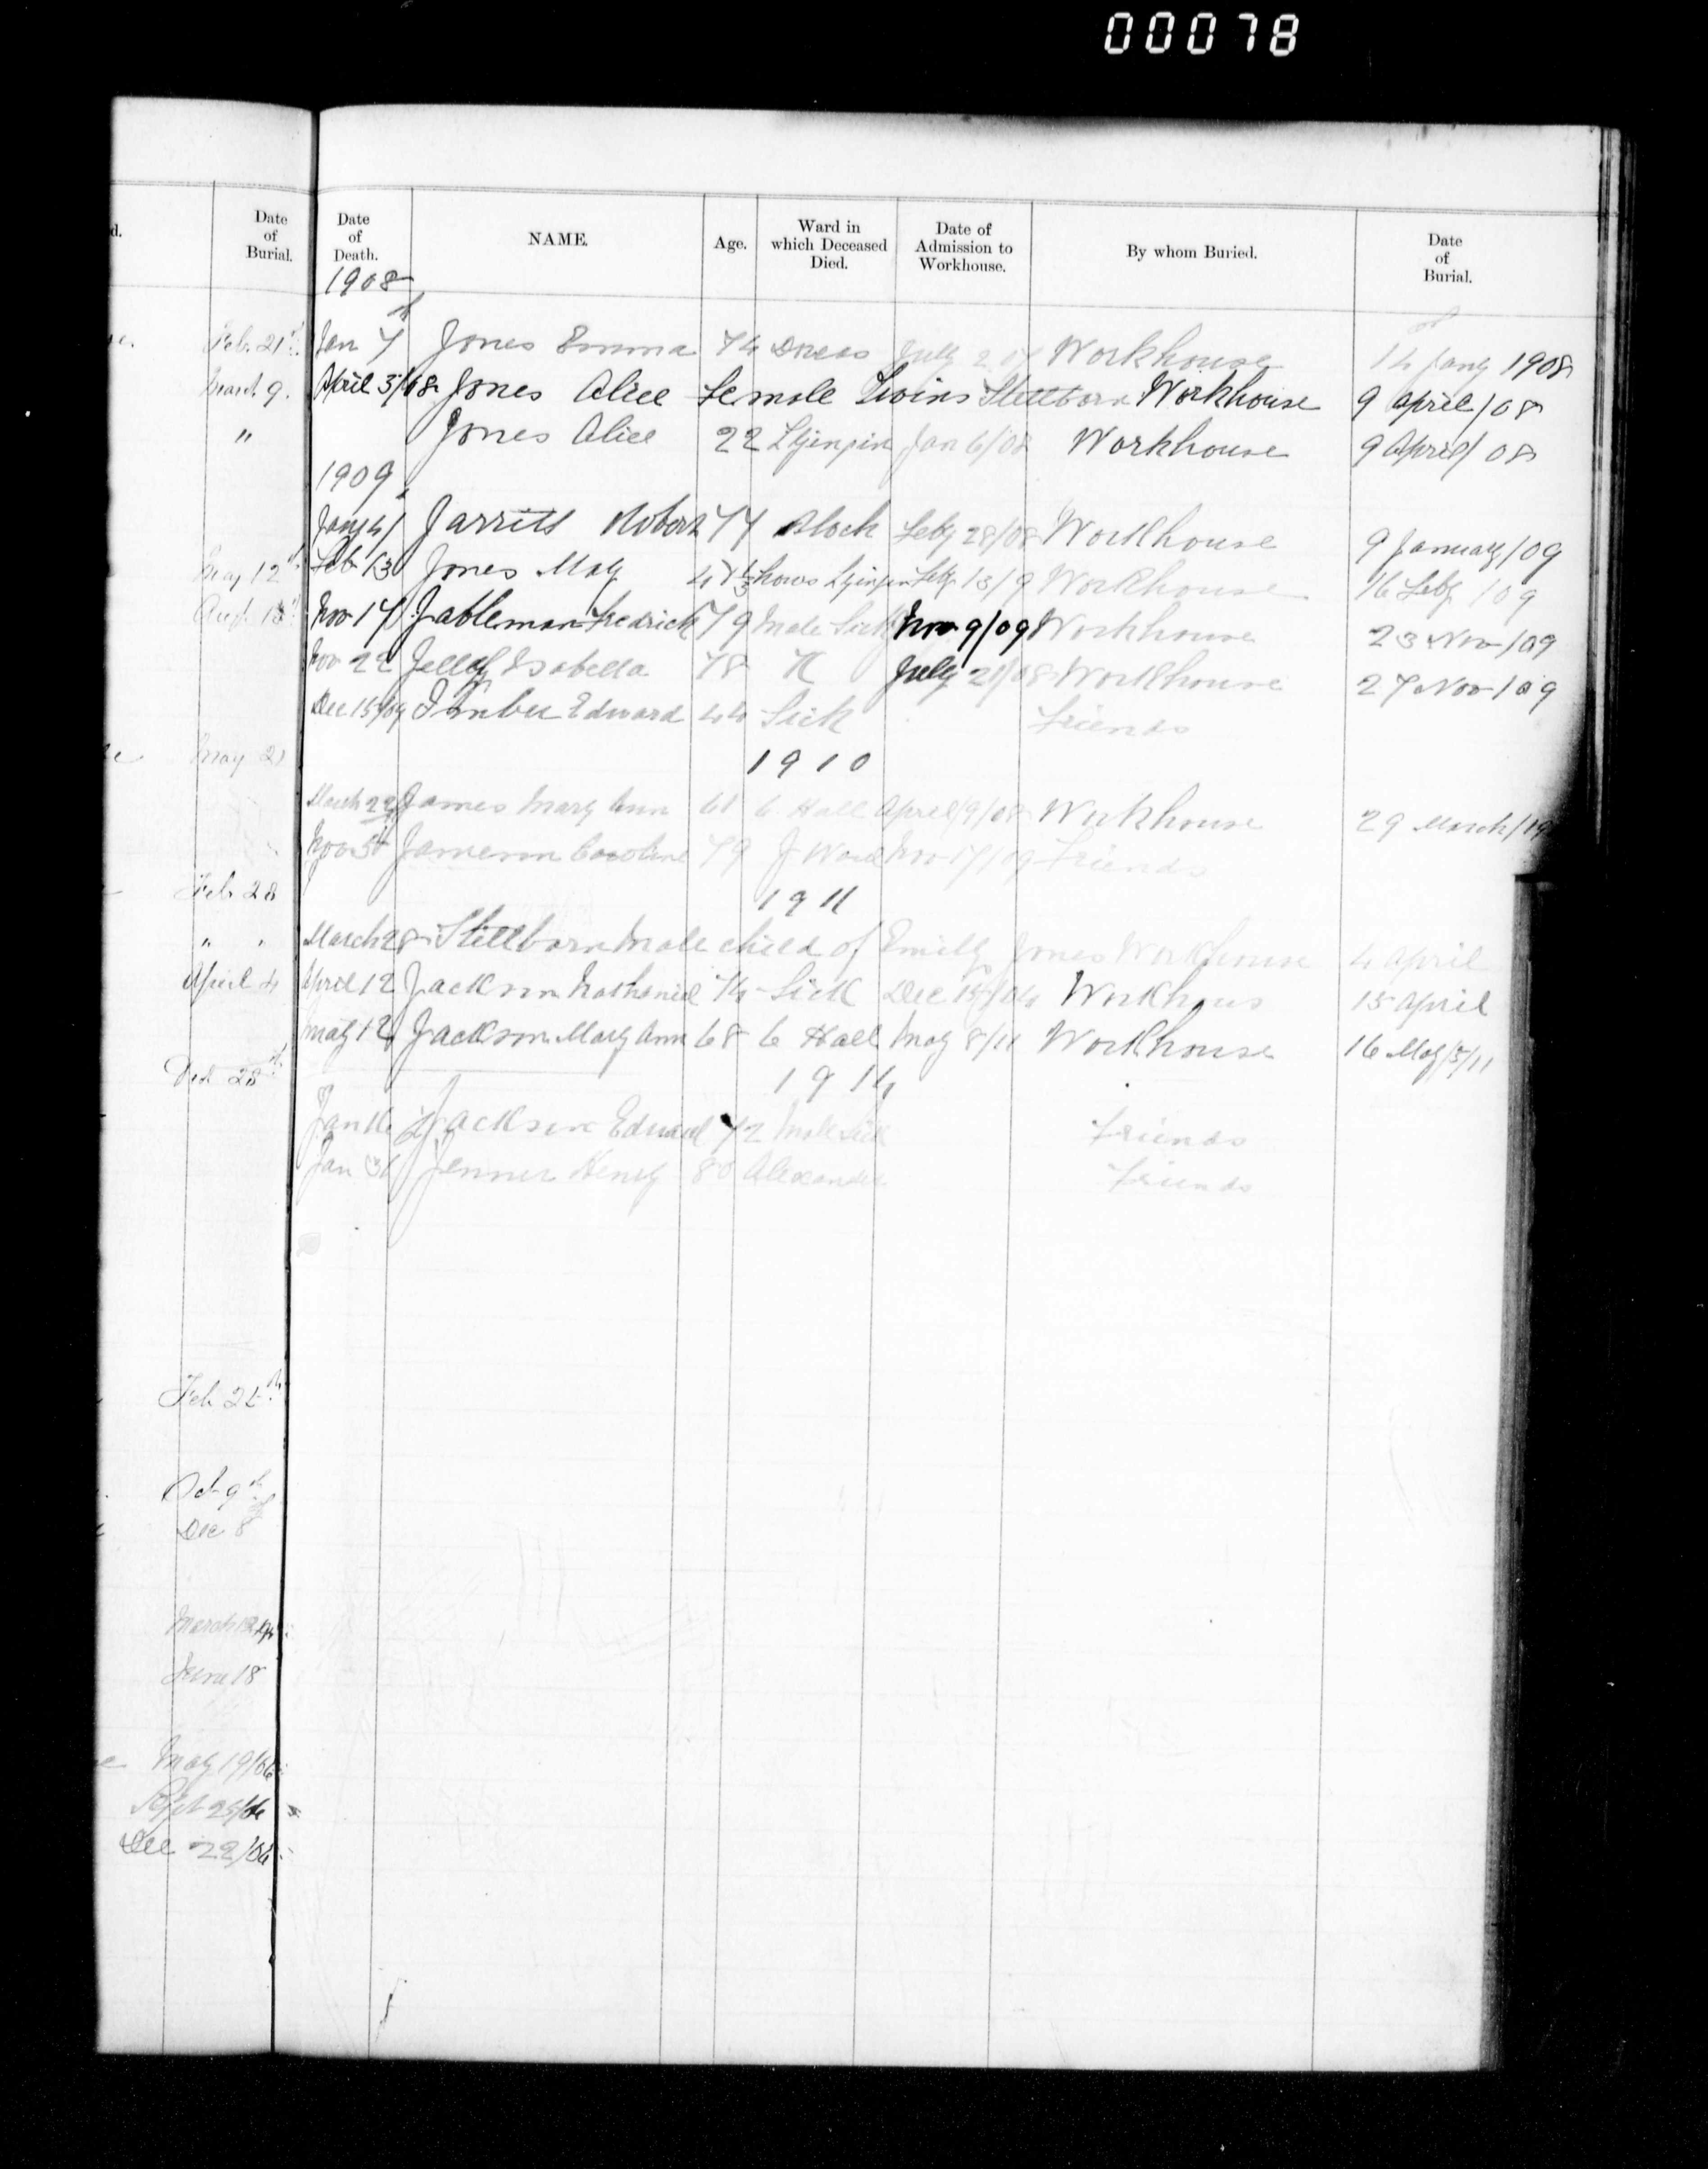 00078
d. Date of Burial. Date of Death. NAME. Age. Ward in which Deceased Died. Date of Admission to Workhouse. By whom Buried. Date of Burial.
1908
Feb. 21st Jan 7 Jones Emma 74 July 2 07 Workhouse 14 Jany 1908
March 9. April 3/08 Jones Alice Female Twins Stillborn Workhouse 9 April/08
" Jones Alice 22 Jan 6/08 Workhouse 9 April/08
1909
Jany 4/ Jarritt Robert 77 Block Feby 28/08 Workhouse 9 January/09
May 12th Feb 13 Jones May Feby 13/9 Workhouse 16 Feby /09
Nov 17 Jableman Fredrick 79 Male Sick Nov 9/09 Workhouse 23 Nov/09
Nov 22 Isabella 78 K July 21/08 Workhouse 27 Nov/09
Dec 15/09 Edward 44 Sick Friends
May 21 1910
March 22 James Mary Ann 61 6 Hall April 9/08 Workhouse 29 March/10
Jameson Caroline 79 J Ward Nov 17/09 Friends
Feb 28 1911
" " March 28 Stillborn Male child of Emily Jones Workhouse 4 April
April 4 April 12 Jackson Nathaniel 74 Sick Dec 15/04 Workhous 15 April
May 12 Jackson Mary Ann 68 6 Hall May 8/11 Workhouse 16 May/5/11
Oct 28th 1914
Jan 16 Jackson Edward 72 Male Sick Friends
Jan 31 Jenner Henry 80 Alexander Friends
Feb 25th
Oct 9th
Dec 8
June 18
May 19/06
Sept 25/06
Dec 22/06